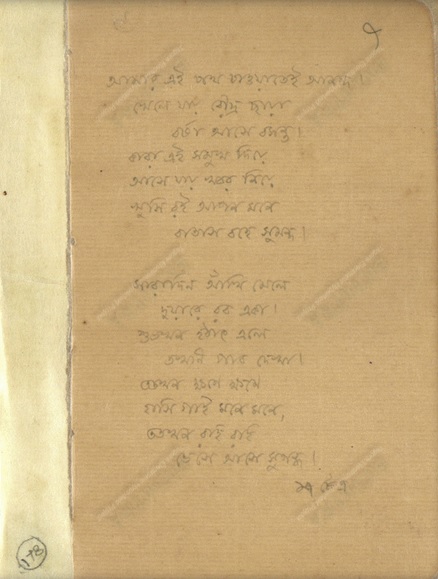 ৭
আমার এই পথ চাওয়াতেই আনন্দ।
খেলে যায় রৌদ্র ছায়া
বর্ষা আসে বসন্ত।
কারা এই সমুখ দিয়ে
আসে যায় খবর নিয়ে
খুসি রই আপন মনে
বাতাস বহে সুমন্দ।
সারাদিন আঁখি মেলে
দুয়ারে রব একা।
শুভখন হঠাৎ এলে
তখনি পাব দেখা।
ততখন ক্ষণে ক্ষণে
হাসি গাই মনে মনে,
ততখন রহি রহি
ভেসে আসে সুগন্ধ।
১৭ চৈত্র
178